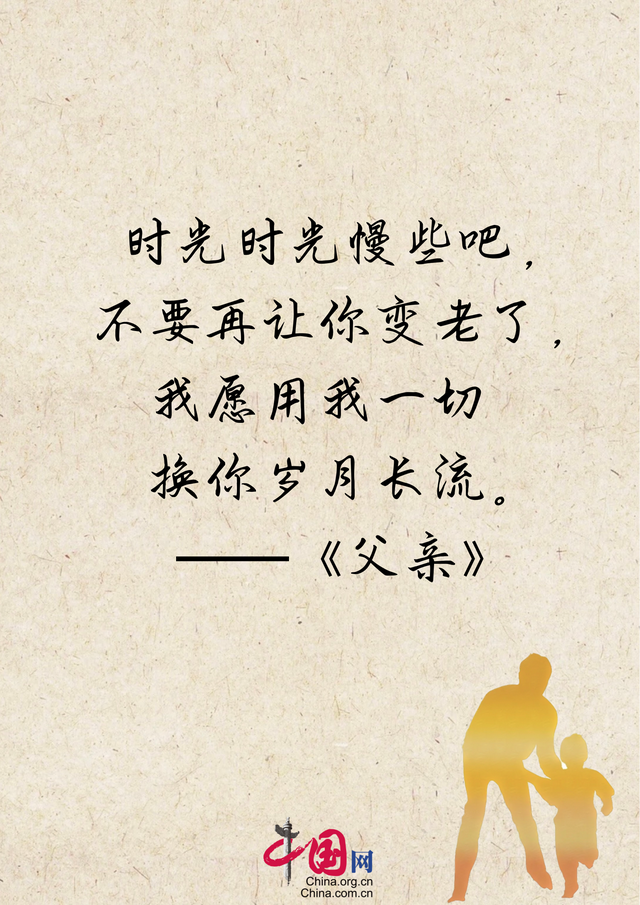 时光时光慢些吧，
不要再让你变老了，
我愿用我一切
换你岁月长流。
——《父亲》
中国网
China.org.cn
China.com.cn